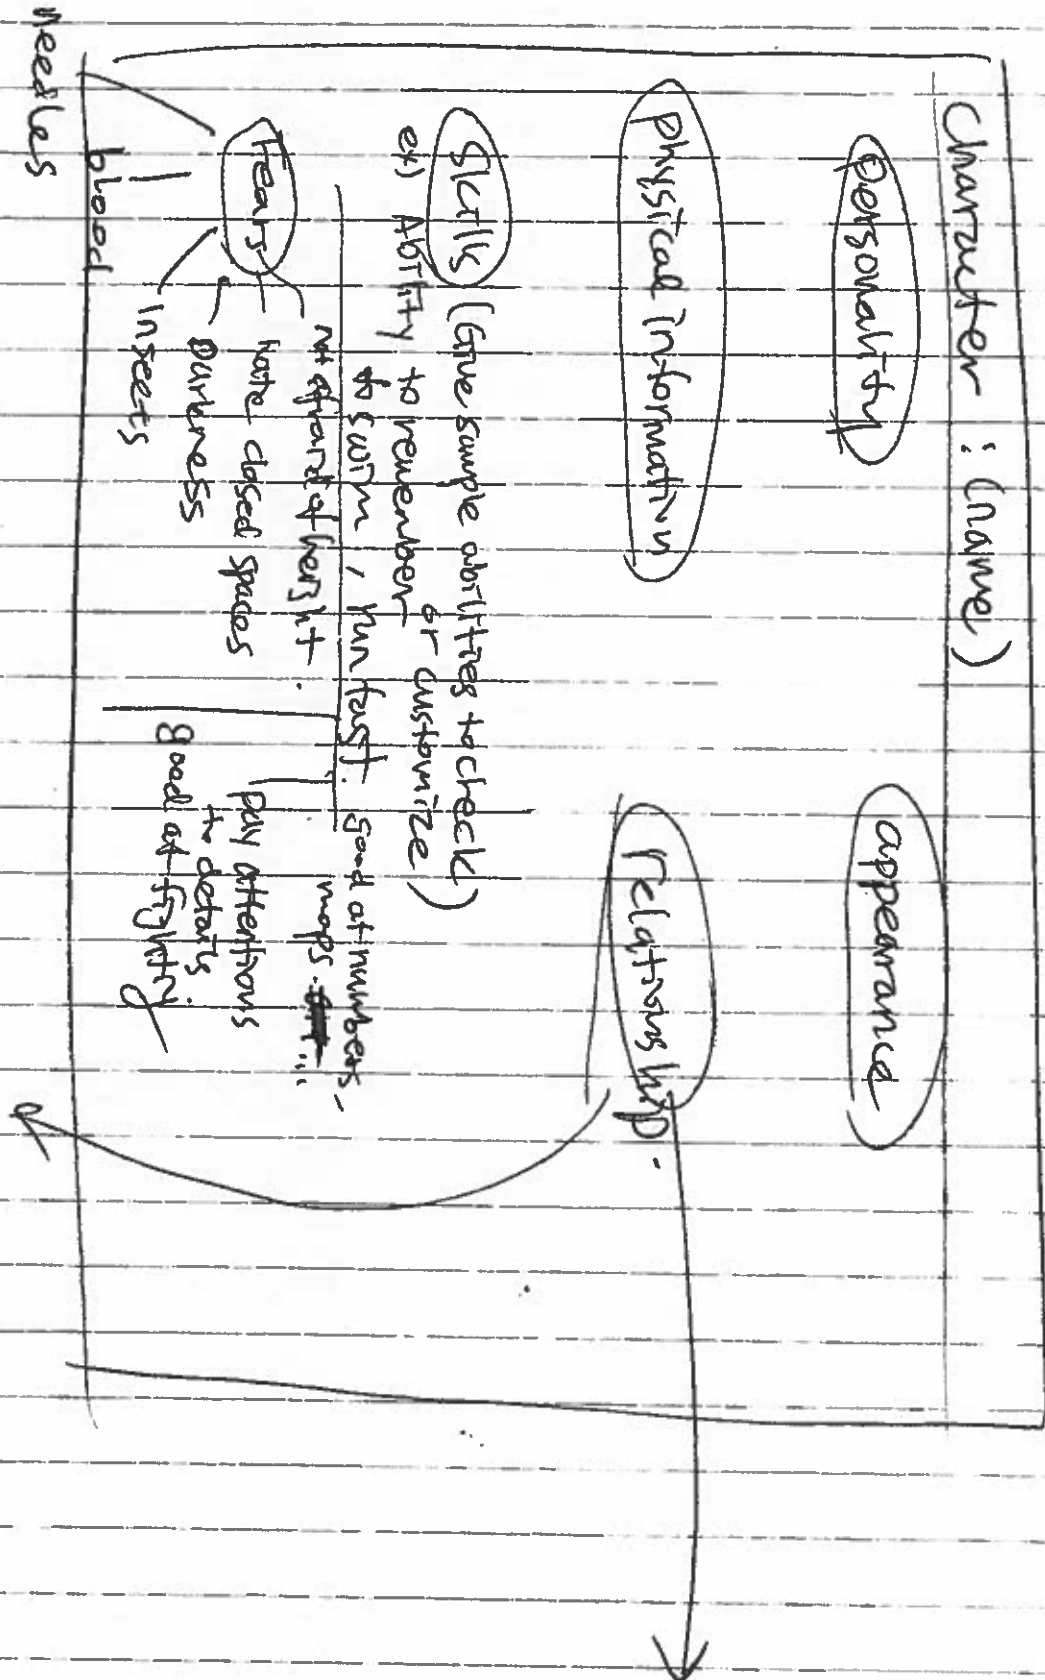 Character : (name)
personality
appearance
physical information
relationship.
Skills (Give sample abilities to check
or customize)
ex) Ability to remember
to swim, run fast. good at numbers-
maps. ...
pay attentions
to details
good at fighting
Fears
not afraid of height.
hate closed spaces
Darkness
Insects
blood
needles